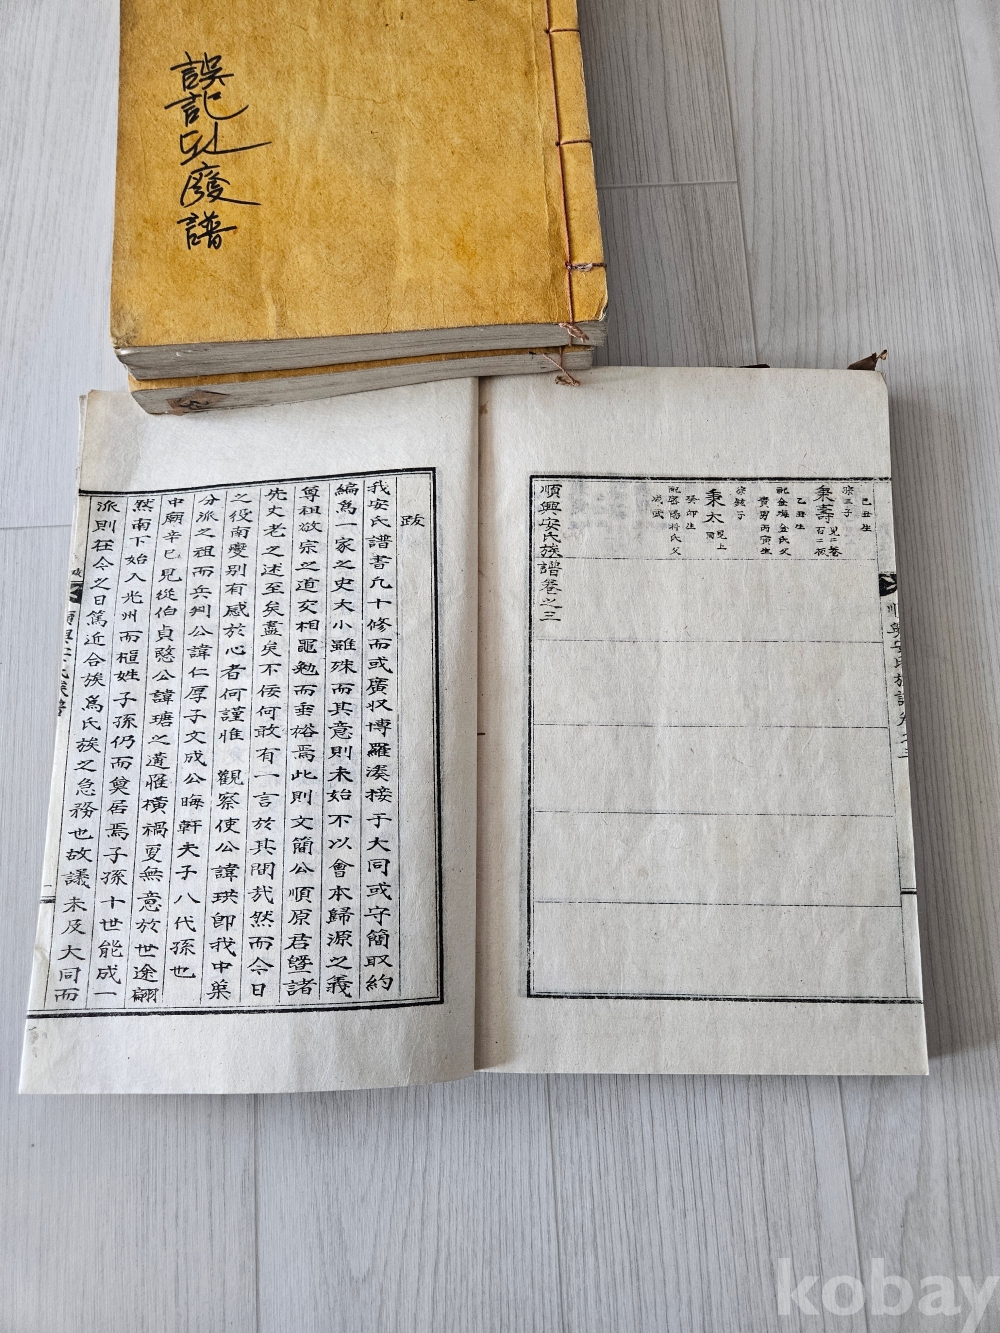 誤記
廢譜
己丑生
宗玉子
秉壽 見二卷
百二板
乙丑生
配金海金氏父
貴男丙寅生
宗鉉子
秉太 見上
同
癸卯生
順興安氏族譜卷之三
順興安氏族譜卷之三
跋
我安氏譜書凡十修而或廣収博羅湊接于大同或守簡取約
編爲一家之史大小雖殊而其意則未始不以會本歸源之義
尊祖欲宗之道交相黽勉而垂裕焉此則文簡公順原君曁諸
先丈老之述至矣盡矣不佞何敢有一言於其間哉然而今日
之役南夔別有感於心者何謹惟 觀察使公諱珙卽我中葉
分派之祖而兵判公諱仁厚子文成公晦軒夫子八代孫也
中廟辛巳見從伯貞愍公諱瑭之遘罹橫禍夏無意於世途翩
然南下始入光州而植姓子孫仍而奠居焉子孫十世能成一
派則在今之日篤近合族爲氏族之急務也故議未及大同而
kobay